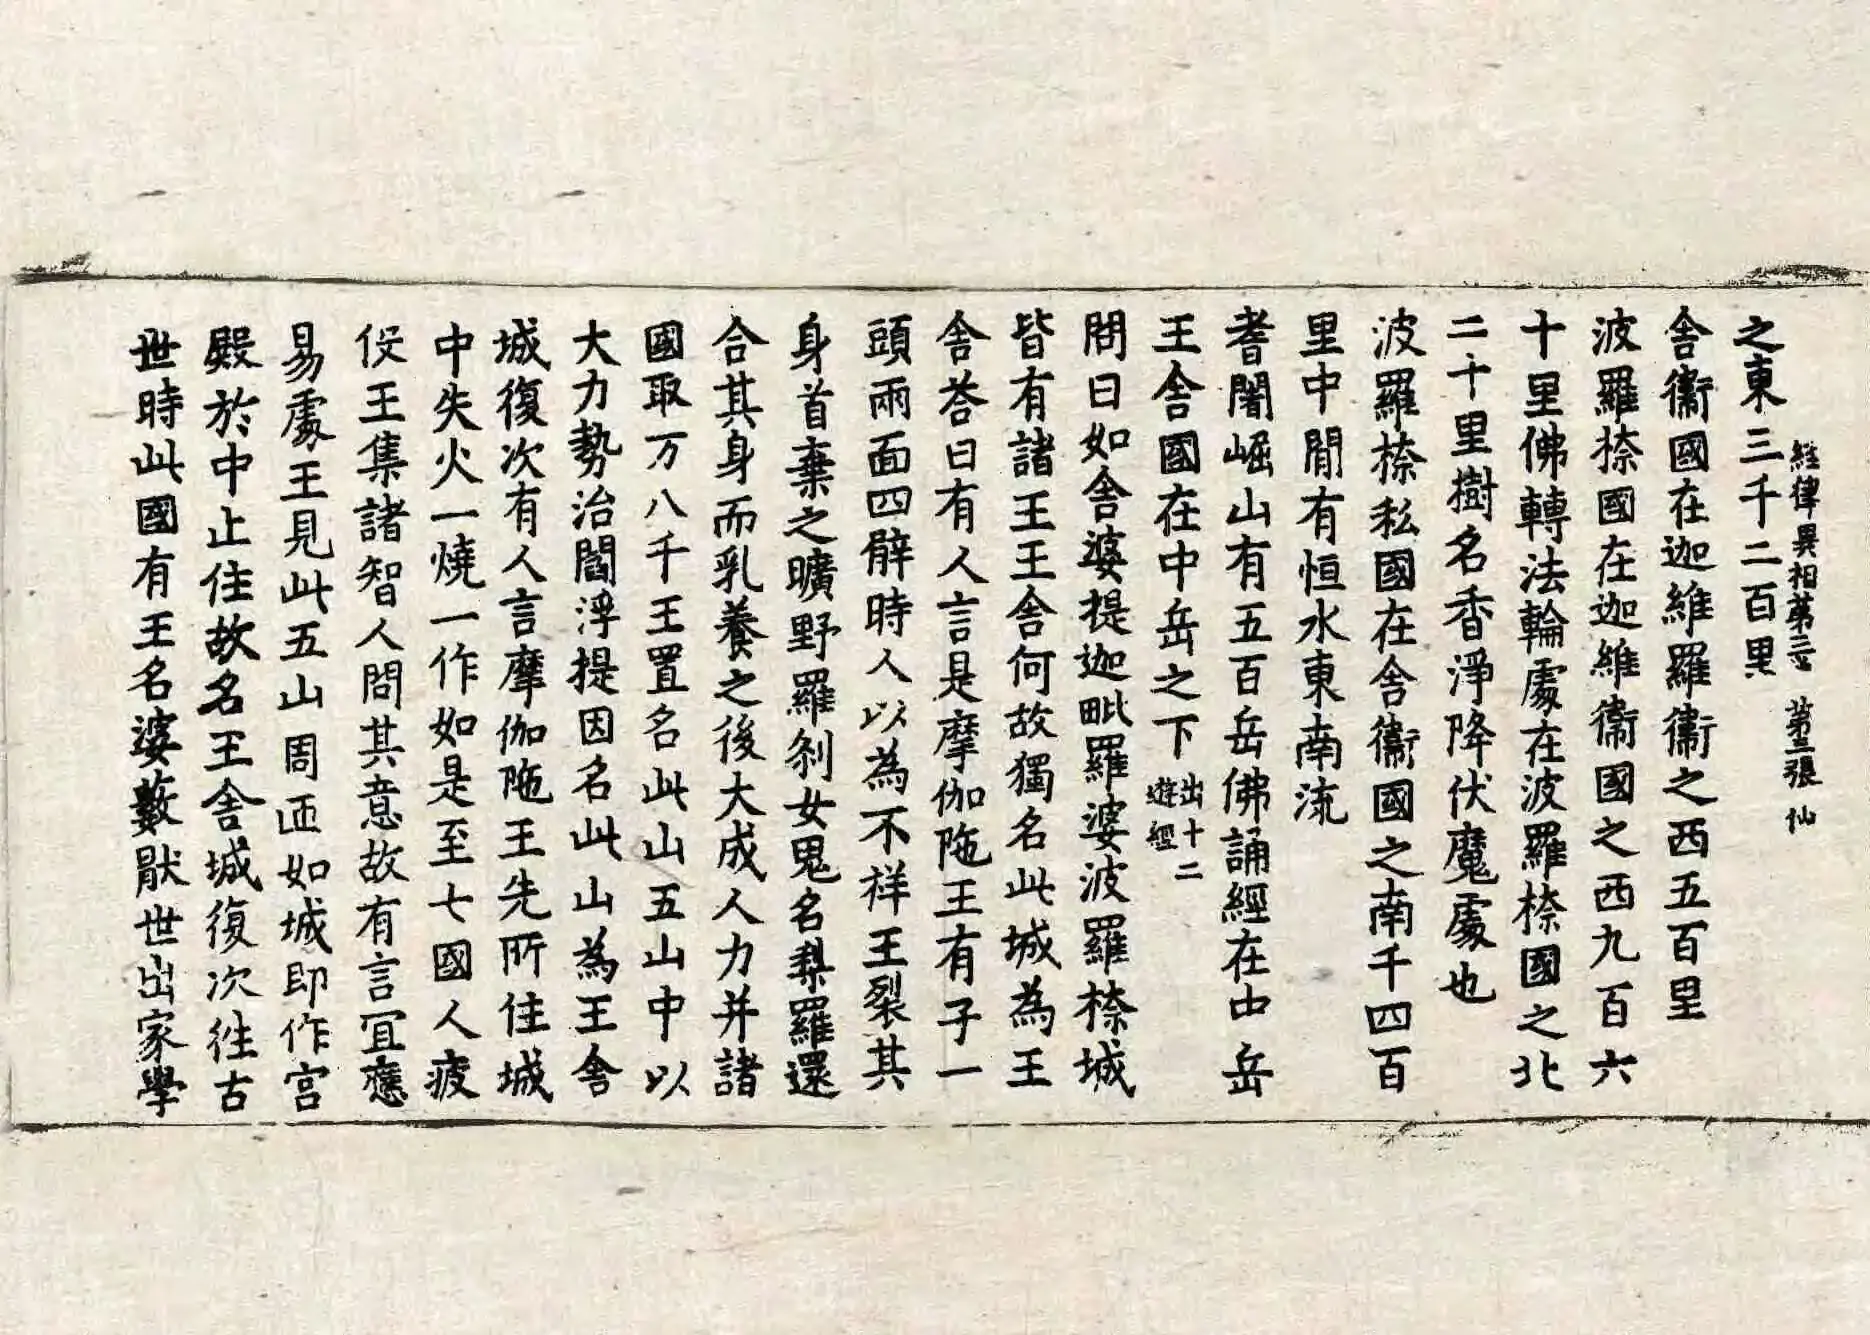 經律異相苐三 第三張 仙
之東三千二百里
舍衞國在迦維羅衞之西五百里
波羅㮈國在迦維衞國之西九百六
十里佛轉法輪處在波羅㮈國之北
二十里樹名香淨降伏魔處也
波羅㮈私國在舍衞國之南千四百
里中閒有恒水東南流
耆闍崛山有五百岳佛誦經在中岳
王舍國在中岳之下出十二
遊經
問曰如舍婆提迦毗羅婆波羅㮈城
皆有諸王王舍何故獨名此城為王
舍荅曰有人言是摩伽陁王有子一
頭兩面四臂時人以為不祥王裂其
身首棄之曠野羅剎女鬼名梨羅還
合其身而乳養之後大成人力并諸
國取万八千王置名此山五山中以
大力勢治閻浮提因名此山為王舍
城復次有人言摩伽陁王先所住城
中失火一燒一作如是至七國人疲
役王集諸智人問其意故有言冝應
易處王見此五山周匝如城即作宮
殿於中止住故名王舍城復次徃古
世時此國有王名婆藪猒世出家學